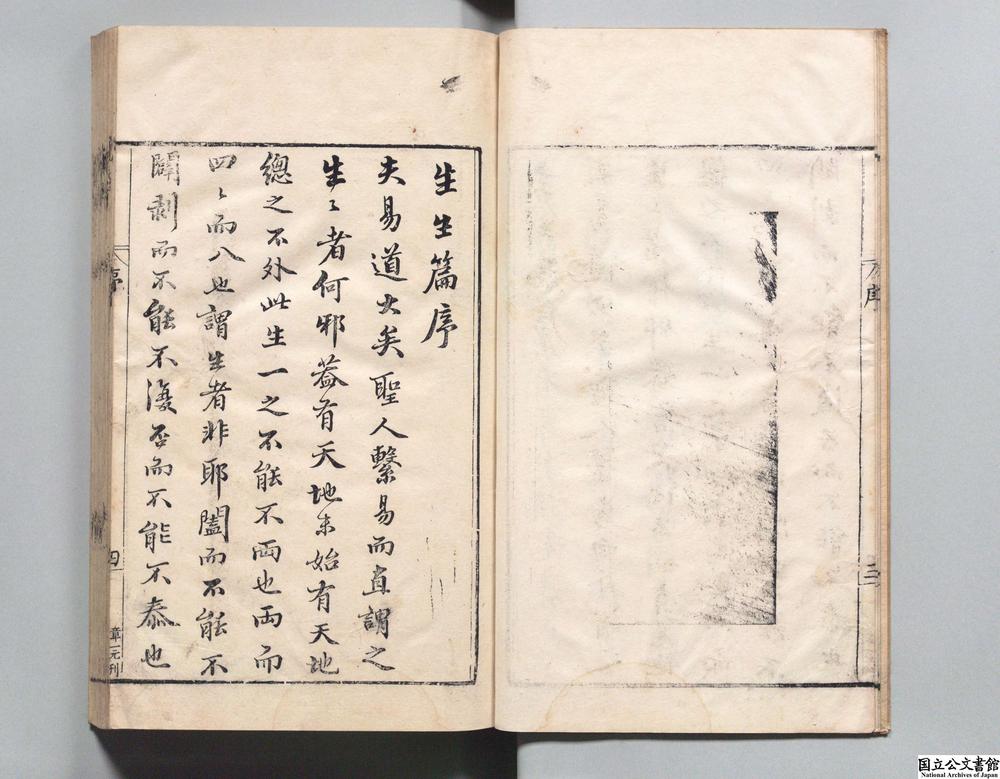 生生篇序
夫易道大矣聖人繫易而直謂之
生〻者何邪蓋有天地未始有天地
總之不外此生一之不能不兩也兩而
四〻而八也謂生者非耶闔而不能不
闢剥而不能不復否而不能不泰也
序
四
章元刊
序
三
国立公文書館
National Archives of Japan